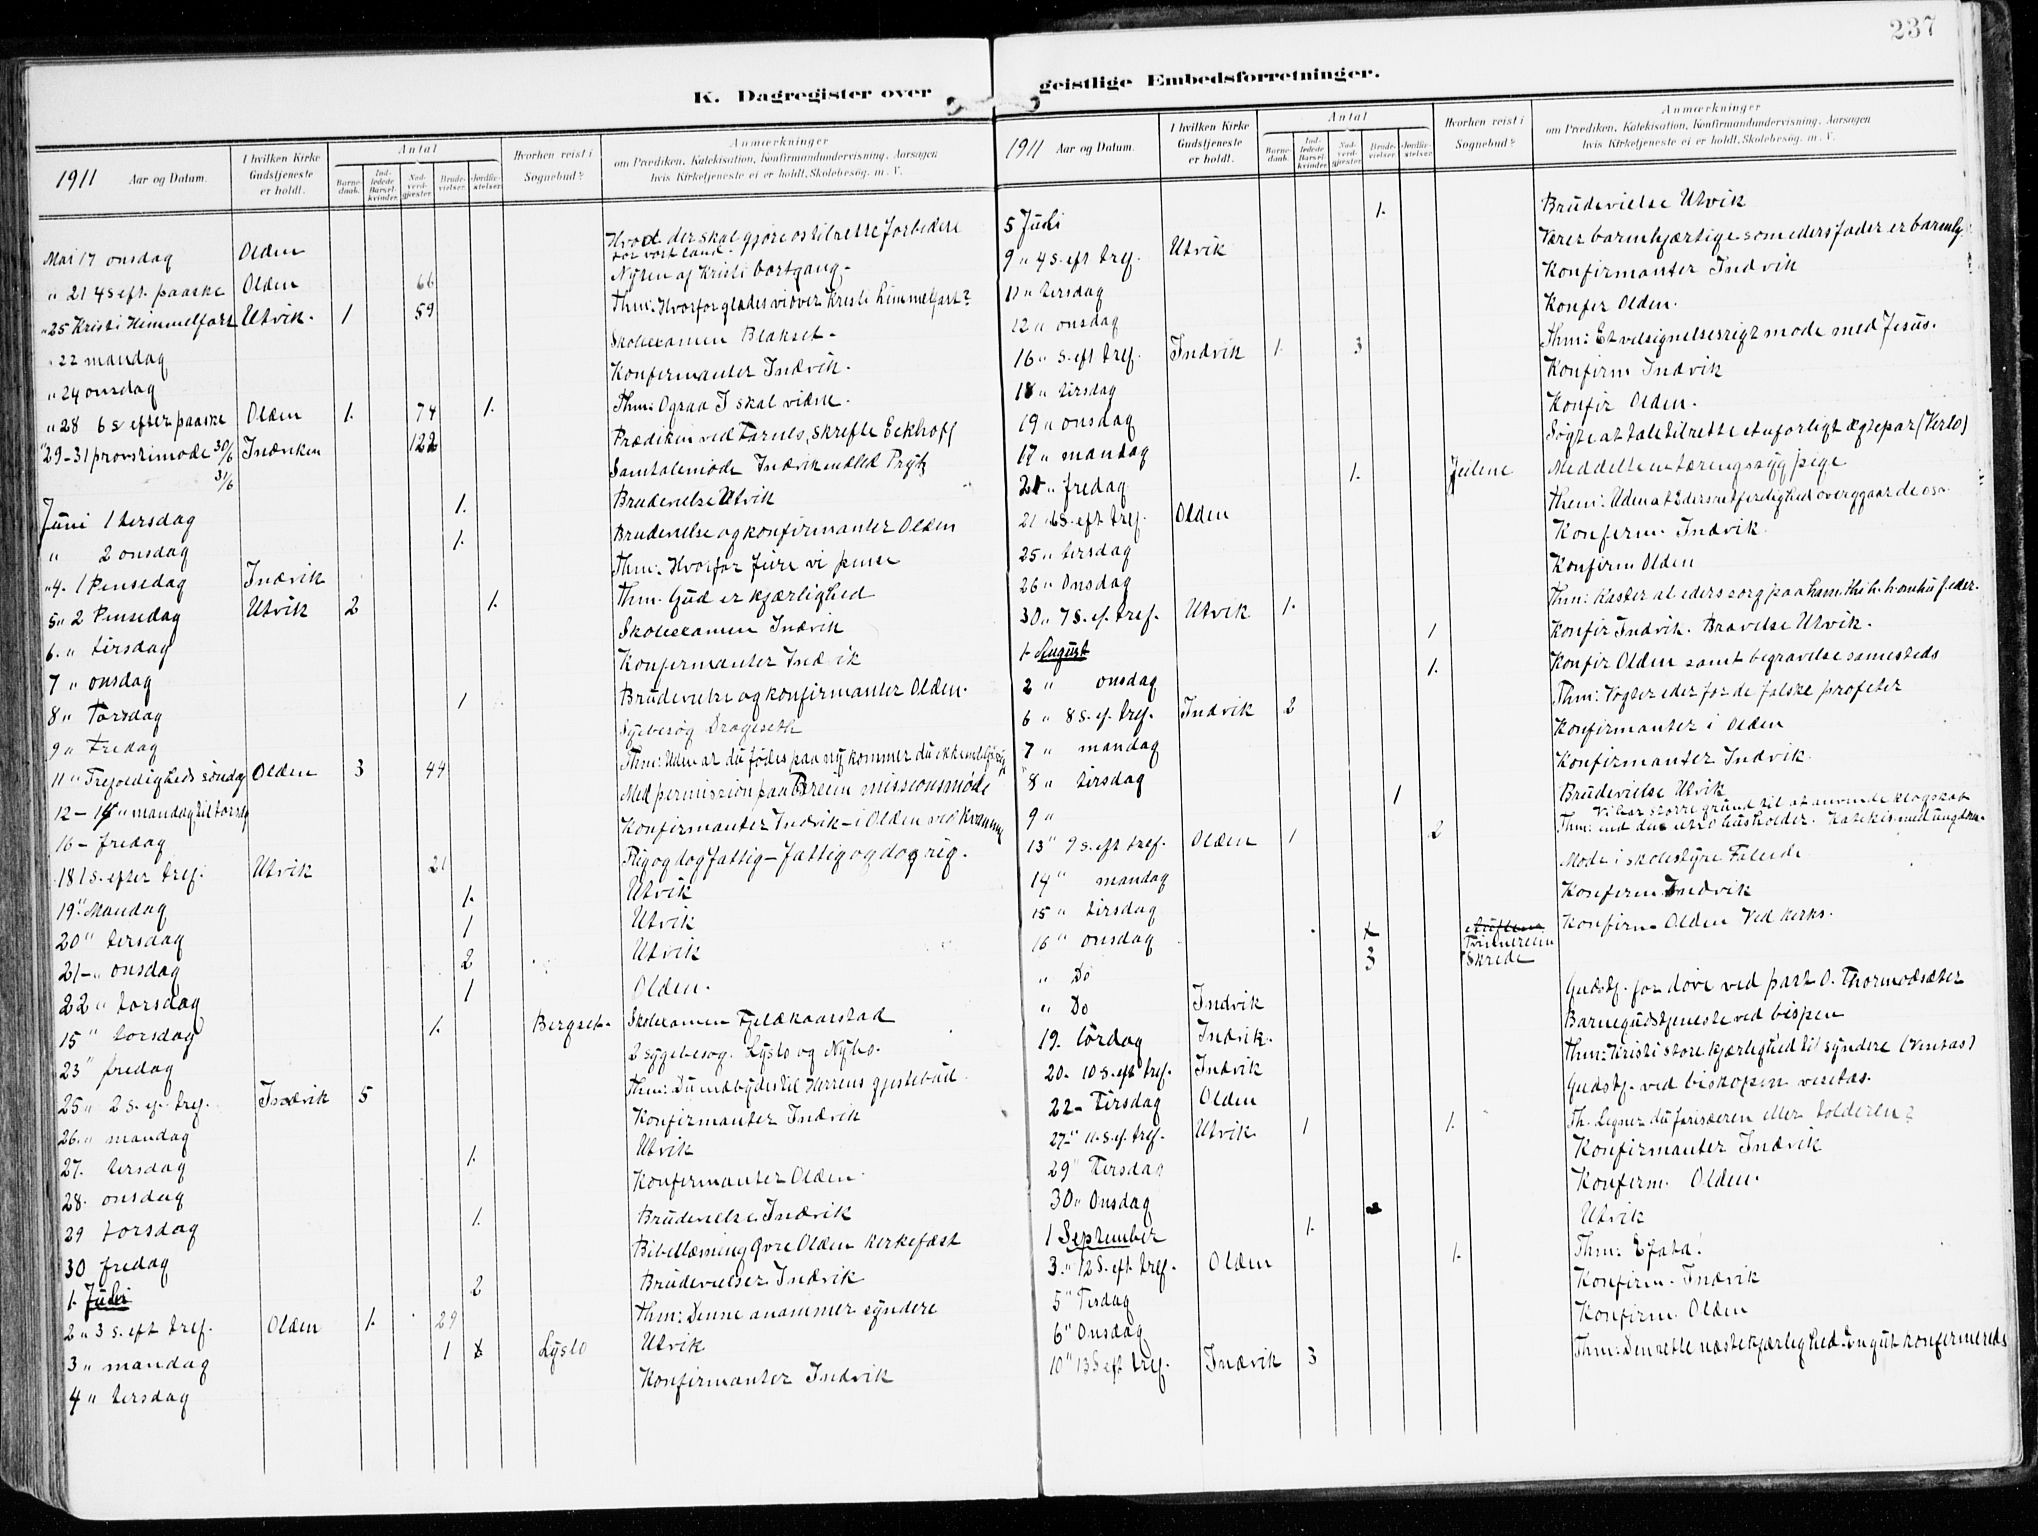 237
K. Dagregister over
geistlige Embedsforretninger.
1911 Aar og Datum.
I hvilken Kirke Gudstjeneste er holdt.
Antal
Barnedaab.
Indledede Barselkvinder.
Nadverdgjester.
Brudevielser.
Jordfæstelser.
Hvorhen reist i Sognebud?
Anmærkninger
om Prædiken, Katekisation, Konfirmandundervisning, Aarsagen
hvis Kirketjeneste ei er holdt, Skolebesøg, m. V.
Mai 17 onsdag Olden Hvad der skal gjøre os til rette forbedere for vort land
" 21 4 s eft. paaske Olden 66 Nytten af Kristi bortgang.
" 25 Kristi Himmelfart Utvik. 1 59 Thm: Hvorfor glædes vi over Kristi himmelfart?
" 22 mandag Skoleexamen Blakset.
" 24 onsdag Konfirmanter Indvik.
" 28 6 s efter paaske Olden 1. 74 1. Thm: Ograa I skal vidne.
" 29-31 provstimøde 30/6 Indviken 122 Prædiken ved skrifte Eckhoff
31/6 Samtalemøde Indvik Prytz
Juni 1 tersdag 1. Brudevielse Utvik
" 2 onsdag 1. Brudevielse og konfirmanter Olden
" 4. 1 Pinsedag Indvik Thm: Hvorfor feire vi pinse
5 " 2 Pinsedag Utvik 2 1. Thm. Gud er kjærlighed
6. " tirsdag Skoleexamen Indvik
7 " onsdag Konfirmanter Indvik
8 " Torsdag 1 Brudevielse og konfirmanter Olden.
9 " Fredag Sygebesøg Drageseth
11 " Trefoldigheds søndag Olden 3 44 Thm: Uden at du fødes paa ny kommer du ikke
12 - 14 " mandag til torsdag Med permission paa missionsmøde
16 - fredag Konfirmanter Indvik - i Olden ved
18 1 s. efter tref. Utvik 21 Rig og dog fattig - fattig og dog rig.
19 " Mandag 1. Utvik
20 " tersdag 1 Utvik
21 - " onsdag 2 Utvik
22 " torsdag 1 Olden.
15 " torsdag 1. Bergset. Skolexamen Fjelkaarstad
23 " fredag 2 sygebesøg. Lyslo og Nybo.
25 " 2 s. ef. tref. Indvik 5 Thm: Du indbydes til Herrens gjestebud.
26. " mandag Konfirmanter Indvik
27. tersdag 1. Utvik
28. onsdag Konfirmanter Olden.
29 torsdag 1. Brudevielse Indvik
30 fredag Bibellæsning Øvre Olden kirkefæst
1. Juli 2 Brudevielser Indvik
2 " 3 s. eft tref. Olden 1. 29 Thm: Denne anammer syndere
3 " mandag 1 Lyslo Utvik
4 " tersdag Konfirmanter Indvik
1911 Aar og Datum.
I hvilken Kirke Gudstjeneste er holdt.
Antal
Barnedaab.
Indledede Barselkvinder.
Nadverdgjester.
Brudevielser.
Jordfæstelser.
Hvorhen reist i Sognebud?
Anmærkninger
om Prædiken, Katekisation, Konfirmandundervisning, Aarsagen
hvis Kirketjeneste ei er holdt, Skolebesøg, m. V.
5 Juli 1. Brudevielse Utvik
9 " 4 S. eft tref. Utvik Værer barmhjærtige som eders fader er barmhj.
11 " tersdag Konfirmanter Indvik
12 " onsdag Konfir Olden.
16 " S. eft tref. Indvik 1. 3 Thm: Et velsignelsesrigt møde med Jesus.
18 " tirsdag Konfirm Indvik
19 " onsdag Konfir Olden.
17 " mandag Søgte at tale tilrette et uforligt ægtepar
21 " fredag 1. Jeilene Meddelte en tæringssyg pige
21 6 S. eft tref. Olden Them: Uden at Eders retferdighed overgaar de osv
25 " tersdag Konferm. Indvik.
26 " Onsdag Konfirm Olden
30 " 7 S. ef. tref. Utvik 1. Thm: Kaster al eders sorg paa ham.
1. August 1 Konfir Indvik. Utvik.
2 " onsdag 1. Konfir Olden samt begravelse samesteds
6 " 8 s. ef. tref. Indvik 2 Thm: Vogter eder for de falske profeter
7 " mandag Konfirmanter i Olden
" 8 " tirsdag Konfirmanter Indvik.
9 " 1 Brudevielse Utvik
13 " 9 s. eft tref. Olden 1 2 Vi har større grund til at anvende klogskab
Thm: end den husholder. Katekis. med ungdm.
14 " mandag Møde i skolestyre Faleide
15 " tirsdag Konferm Indvik
16 " onsdag Konfirm Olden Ved kirks.
" Do Skrede
" Do Indvik Gudstj. for døve ved past O.
19. lørdag Indvik. Barnegudstjeneste ved bispen
20. 10 s. eft tref. Indvik Thm: Kristi store kjærlighed til syndere
22 - Tirsdag Olden Gudstj. ved biskopen visitas.
27 " 11. s. ef. tref. Utvik 1 1. Th. Ligner du fariseeren eller tolderen?
29 " Tirsdag Konfirmanter Indvik
30 " Onsdag Konfirm. Olden.
1 September 1. Utvik
3. " 12 s. eft tref. Olden 1. Thm: Efata!
5 " Tisdag Konfirm. Indvik
6 " Onsdag Konfirm. Olden
10 " 13 S eft tref. Indvik 3 Thm: Den rette næstekjærlighed. En gut konfirmeredes